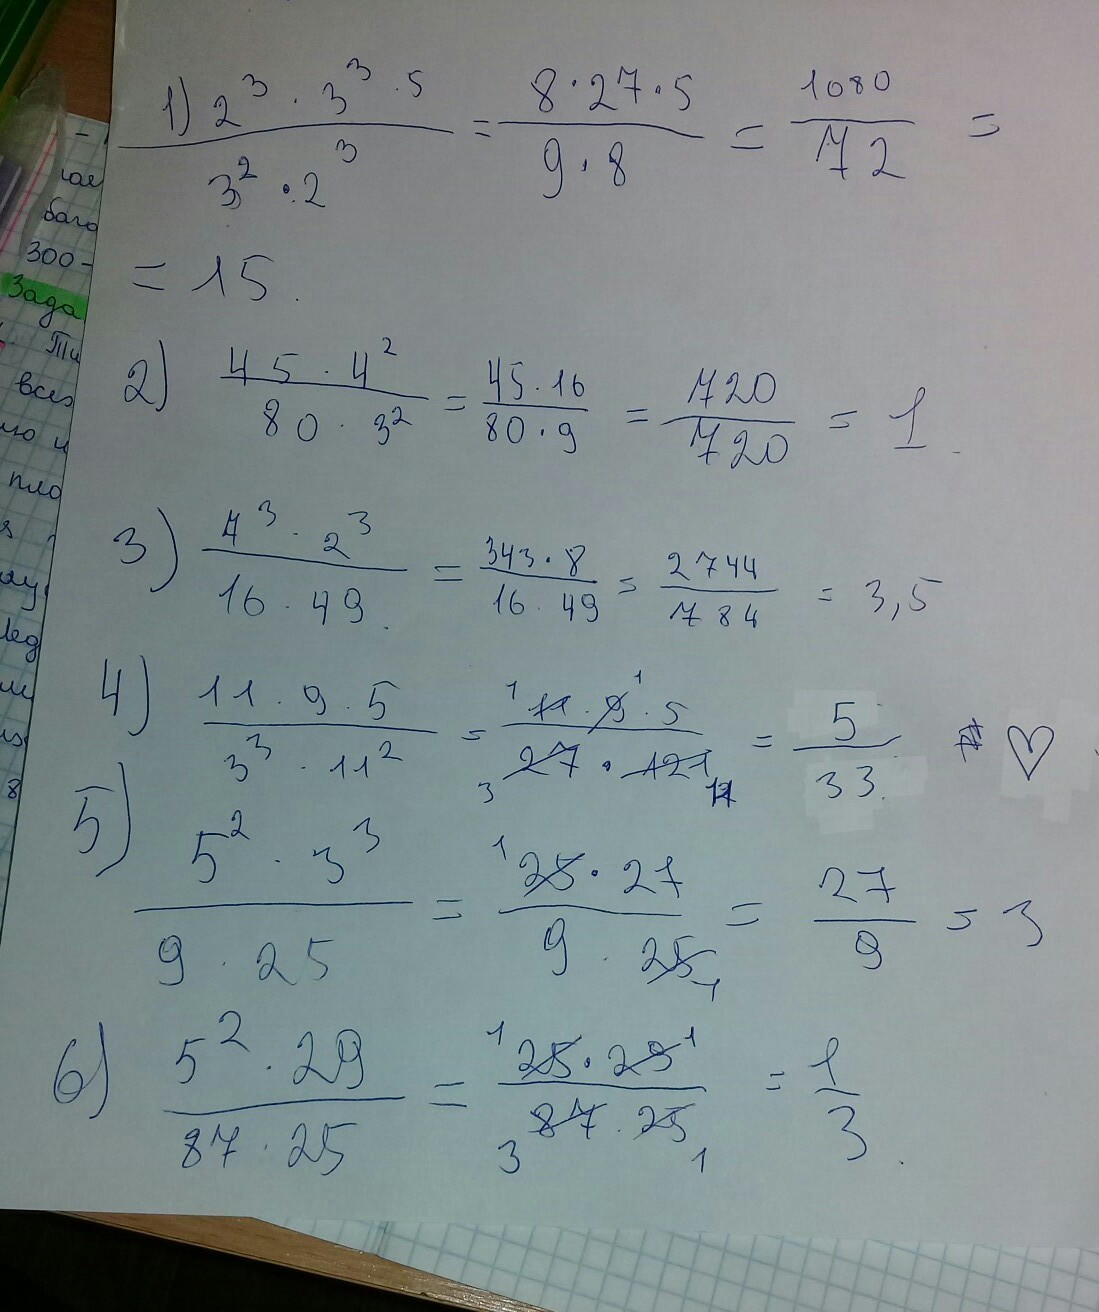 1) 2³ · 3³ · 5 / 3² · 2³ = 8 · 27 · 5 / 9 · 8 = 1080 / 72 =
= 15.
2) 45 · 4² / 80 · 3² = 45 · 16 / 80 · 9 = 720 / 720 = 1.
3) 7³ · 2³ / 16 · 49 = 343 · 8 / 16 · 49 = 2744 / 784 = 3,5
4) 11 · 9 · 5 / 3³ · 11² = 11 · 9 · 5 / 27 · 121 = 5 / 33 ♡
5) 5² · 3³ / 9 · 25 = 25 · 27 / 9 · 25 = 27 / 9 = 3
6) 5² · 29 / 87 · 25 = 25 · 29 / 87 · 25 = 1 / 3.
300-
Зада
всез
пло
8